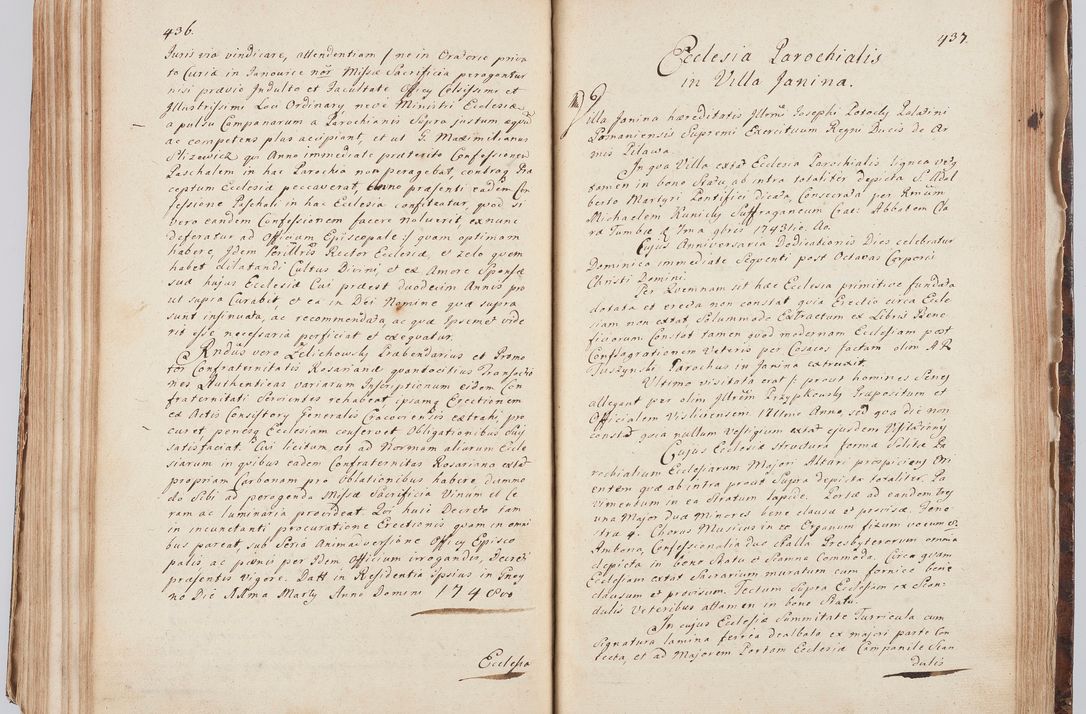 436.
Juris via vindicare, attendentiam / ne in Oratorio priva
to Curiæ in Janowice non Missæ Sacrificia peragantur
nisi prævio Indulto et Facultate Officy Celsissimi et
Illustrissimi Loci Ordinary neve Ministri Ecclesiæ
a pulsu Campanarum a Parochianis Supra justum æquum
ac competens plus accipiant, et ut G. Maximilianus
qui Anno immediate præterito Confessionem
Paschalem in hac Parochia non peragebat, contraq Præ
ceptum Ecclesiæ peccaverat, Anno præsenti eadem Con
fessione Paschali in hac Ecclesia confiteatur, quod si
vero eandem Confessionem facere noluerit, ex nunc
deferatur ad Officium Episcopale :/ quam optimam
habere, Idem Perillris Rector Ecclesiæ, et zelo quem
habet dilatandi Cultus Divini, et ex Amore Sponsæ
suæ hujus Ecclesiæ Cui præest duodecim Annis pro
ut supra Curabit, et ea in Dei Nomine quæ supra
sunt insinuata, ac recommendata, ac quæ Ipsemet vide
rit esse necessaria perficiat et exequatur.
Rndus vero Zelichowsky Præbendarius et Promo
tor Confraternitatis Rosarianæ quandocitius Transactio
nes Authenticas variarum Inscriptionum eidem Con
fraternitati Servientes rehabeat, ipsamq Erectionem
ex Actis Consistory Generalis Cracoviensis extrahi pro
curet, penesq Ecclesiam conservet Obligationibus Suis
satisfaciat. Cui licitum est ad Normam aliarum Eccle
siarum in quibus eadem Confraternitas Rosariana extat
propriam Carbonam pro Oblationibus habere, dummo
do Sibi ad peragenda Missæ Sacrificia Vinum et Ce
ram ac luminaria provideat. Qui huic Decreto tam
in incunctanti procuratione Erectionis quam in omni
bus pareat, sub Seria Animadversione Officy Episco
palis, ac pænis per Idem Officium irrogandis, Decreti
præsentis vigore. Datt in Residentia Ipsius in Gnoy
no Die Martÿ Anno Domini 1748vo
Ecclesia
437.
Ecclesia Parochialis
in Villa Janina.
Villa Janina hæreditatis Illmi Josephi Potocky Palatini
Posnaniensis Supremi Exercituum Regni Ducis de Ar
mis Pilawa.
In qua Villa extat Ecclesia Parochialis lignea vetus
tamen in bono Statu, ab intra totaliter depicta S. Adal
berto Martyri Pontifici dicata, Consecrata per Rmum
Michaelem Kunicky Suffraganeum Crac: Abbatem Cla
ræ Tumbæ Ima 9bris 1743tio. Ao.
Cujus Anniversaria Dedicationis Dies celebratur
Dominica immediate Sequenti post Octavas Corporis
Christi Domini.
Per Quemnam sit hæc Ecclesia primitive fundata
dotata et erecta non constat quia Erectio circa Eccle
siam non extat Solummodo Extractum ex Libris Bene
ficiorum Constat tamen quod modernam Ecclesiam post
Conflagrationem Veteris per Cosacos factam olim A R
Parochus in Janina extruxit.
Ultimo visitata erat / prout homines Senes
allegant per olim Illrem Przypkowsky Præpositum et
Officialem Visliciensem 1711mo Anno, sed qua die non
constat quia nullum vestigium extat ejusdem Visitationis
Cujus Ecclesiæ structura forma Solita Pa
rochialium Ecclesiarum Majori Altari prospiciens Ori
entem quæ ab intra prout Supra depicta totaliter. Pa
vimentum in ea Stratum lapide. Portæ ad eandem tres
una Major duæ Minores bene clausæ et provisæ. Fene
stræ 4. Chorus Musicus in eo Organum fixum vocum
Ambona, Confessionalia duo Stalla Presbyterorum omnia
depicta in bono Statu et Scamna Commoda. Circa quam
Ecclesiam extat Sacrarium muratum cum fornice bene
clausum et provisum. Tectum Supra Ecclesiam ex Scan
dulis Veteribus attamen in bono Statu.
In cujus Ecclesiæ Summitate Turricula cum
Signatura lamina ferrea dealbata ex majori parte Con
tecta, et ad Majorem Portam Ecclesiæ Campanile Scan
dulis